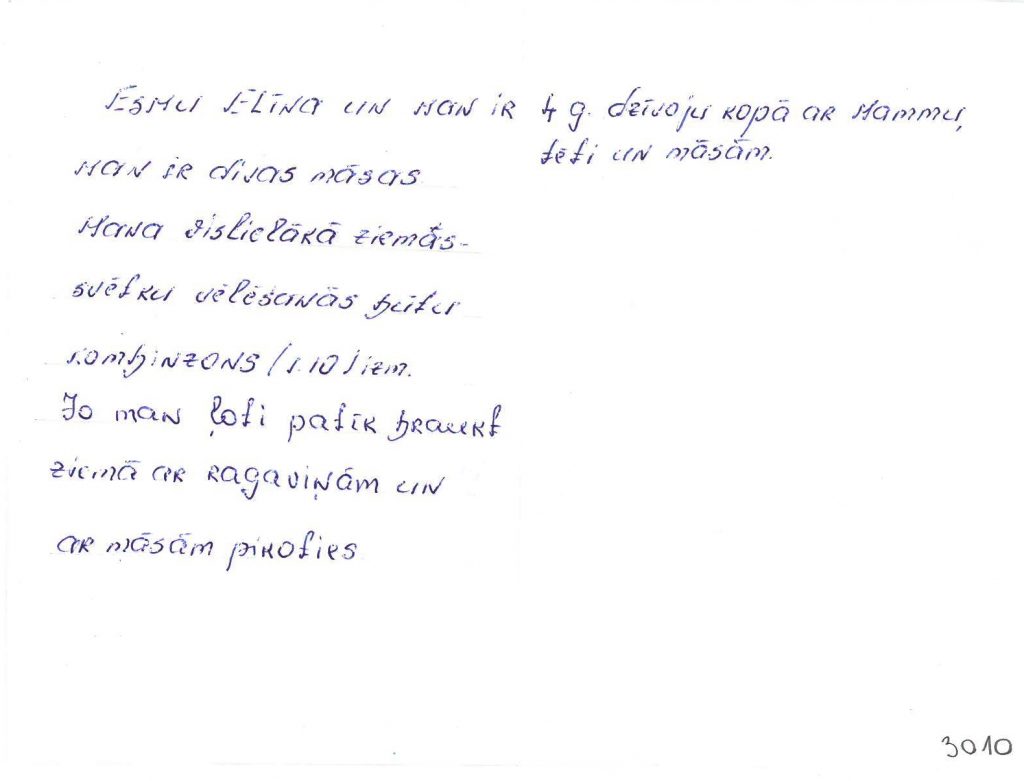 Esmu Elīna un man ir 4 g. dzīvoju kopā ar Mammu,
tēti un māsām.
Man ir divas māsas
Mana vislielākā ziemās-
svētku vēlēšanās būtu
kombinzons /1.10/ izm.
Jo man ļoti patīk braukt
ziemā ar ragaviņām un
ar māsām pikoties
3010